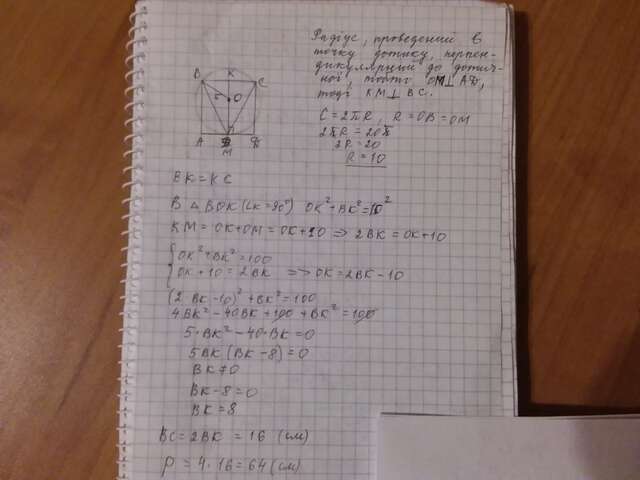 Радіус, проведений в
точку дотику, перпен-
дикулярний до дотич-
ної, тобто OM⊥AD,
тоді KM⊥BC.
B K C
O
A M
C=2πR, R=OB=OM
2πR=20π
2R=20
R=10
BK=KC
В △BOK(∠K=90°) OK²+BK²=10²
KM=OK+OM=OK+10 ⇒ 2BK=OK+10
{OK²+BK²=100
OK+10=2BK ⇒ OK=2BK-10
(2BK-10)²+BK²=100
4BK²-40BK+100+BK²=100
5·BK²-40·BK=0
5BK(BK-8)=0
BK≠0
BK-8=0
BK=8
BC=2BK=16 (см)
P=4·16=64(см)